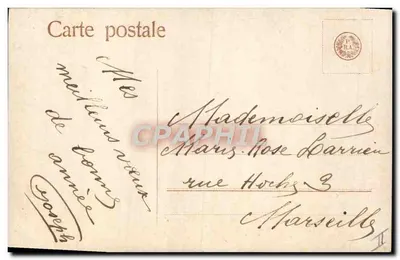 Carte postale
Mes
meilleurs vœux
de bonne
année
Joseph
Mademoiselle
Marie-Rose Larrieu
rue Hoche 3
Marseille
CPAPHIL
II